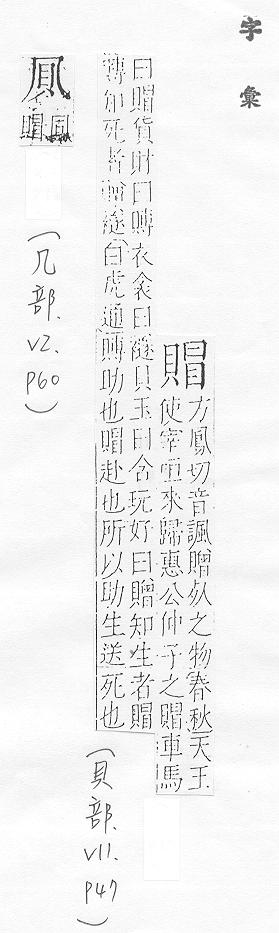 字彙
賵
方鳳切音諷贈死之物春秋天王
使宰咺來歸惠公仲子之賵車馬
曰賵貨財曰賻衣衾曰襚貝玉曰含玩好曰贈知生者賵
賻知死者贈襚白虎通賻助也賵赴也所以助生送死也
(貝部.V11.P47)
賵
(几部.V2.P60)